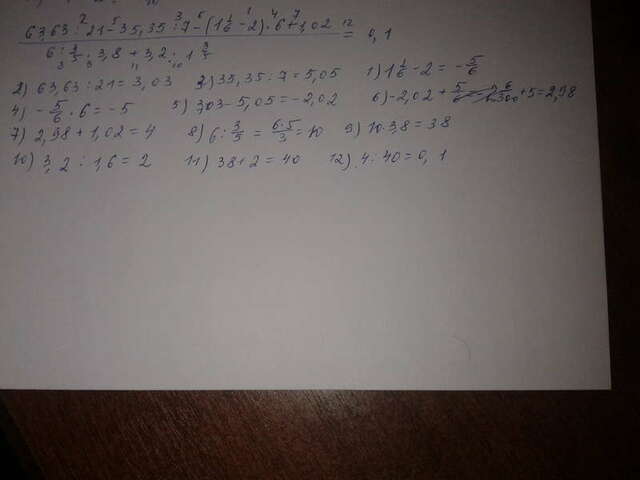 63,63 : 21 - 35,35 : 7 - (1 1/6 - 2) · 6 + 1,02 = 0,1
6 : 3/5 · 3,8 + 3,2 : 1 3/5
2) 63,63 : 21 = 3,03 3) 35,35 : 7 = 5,05 1) 1 1/6 - 2 = - 5/6
4) - 5/6 · 6 = -5 5) 303 - 5,05 = -2,02 6) -2,02 + 5 = 2,98
7) 2,98 + 1,02 = 4 8) 6 : 3/5 = 6·5/3 = 10 9) 10·3,8 = 38
10) 3,2 : 1,6 = 2 11) 38 + 2 = 40 12) 4 : 40 = 0,1